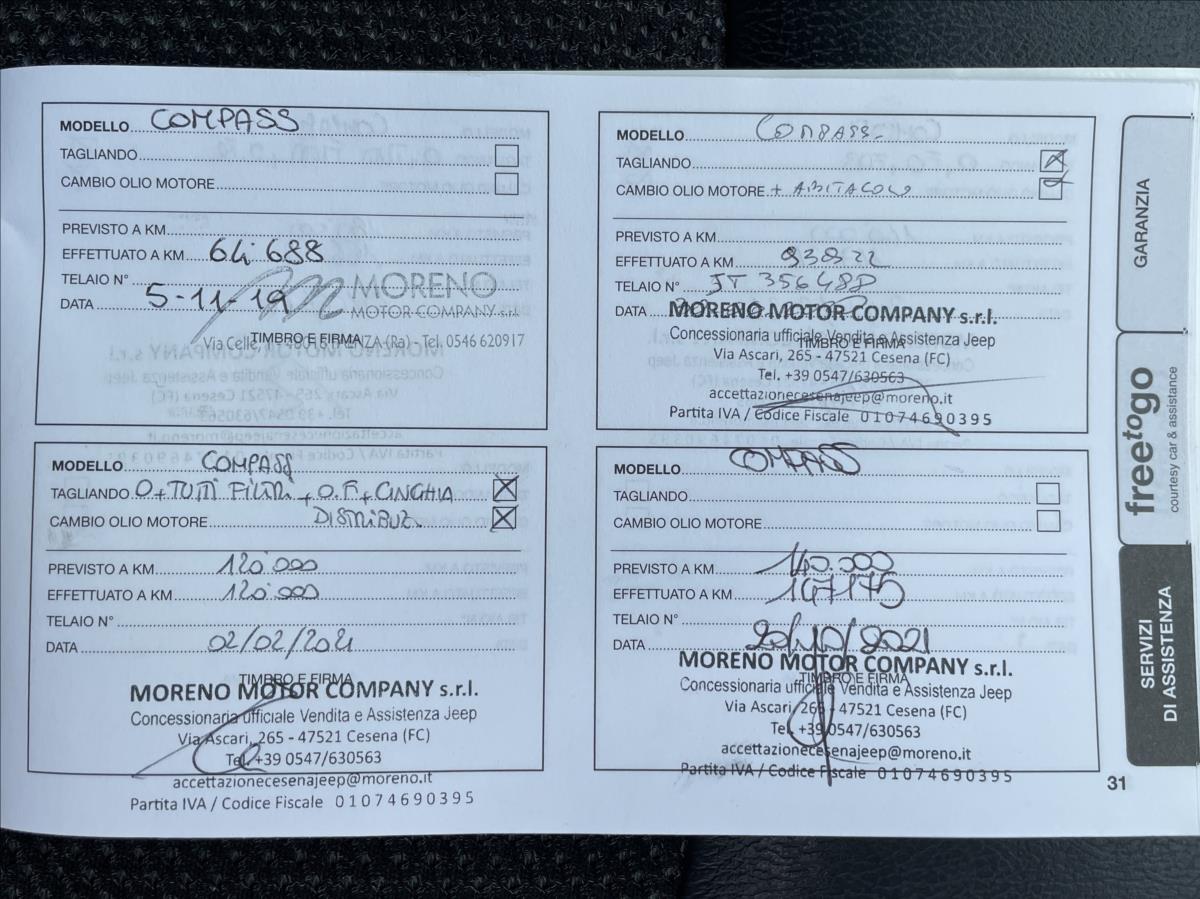 MODELLO COMPASS
TAGLIANDO
CAMBIO OLIO MOTORE
PREVISTO A KM
EFFETTUATO A KM 64.688
TELAIO N°
DATA 5-11-19
MORENO
MOTOR COMPANY s.r.l.
TIMBRO E FIRMA
Via Celle, (Ra) - Tel. 0546 620917
MODELLO COMPASS
TAGLIANDO
CAMBIO OLIO MOTORE + ABITACOLO
PREVISTO A KM
EFFETTUATO A KM 93822
TELAIO N° JT 356488
DATA
MORENO MOTOR COMPANY s.r.l.
TIMBRO E FIRMA
Concessionaria ufficiale Vendita e Assistenza Jeep
Via Ascari, 265 - 47521 Cesena (FC)
Tel. +39 0547/630563
accettazionecesenajeep@moreno.it
Partita IVA / Codice Fiscale 01074690395
MODELLO COMPASS
TAGLIANDO O+TUTTI FILTRI + O.F + CINGHIA
CAMBIO OLIO MOTORE DISTRIBUZ.
PREVISTO A KM 120.000
EFFETTUATO A KM 120.000
TELAIO N°
DATA 02/02/2021
TIMBRO E FIRMA
MORENO MOTOR COMPANY s.r.l.
Concessionaria ufficiale Vendita e Assistenza Jeep
Via Ascari, 265 - 47521 Cesena (FC)
Tel. +39 0547/630563
accettazionecesenajeep@moreno.it
Partita IVA / Codice Fiscale 01074690395
MODELLO COMPASS
TAGLIANDO
CAMBIO OLIO MOTORE
PREVISTO A KM 140.000
EFFETTUATO A KM 147175
TELAIO N°
DATA 20/10/2021
MORENO MOTOR COMPANY s.r.l.
TIMBRO E FIRMA
Concessionaria ufficiale Vendita e Assistenza Jeep
Via Ascari, 265 - 47521 Cesena (FC)
Tel. +39 0547/630563
accettazionecesenajeep@moreno.it
Partita IVA / Codice Fiscale 01074690395
GARANZIA
freetogo
courtesy car & assistance
SERVIZI
DI ASSISTENZA
31